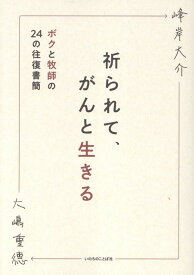 峰岸大介
祈られて、
がんと生きる
ボクと牧師の
24の往復書簡
大嶋重徳
いのちのことば社